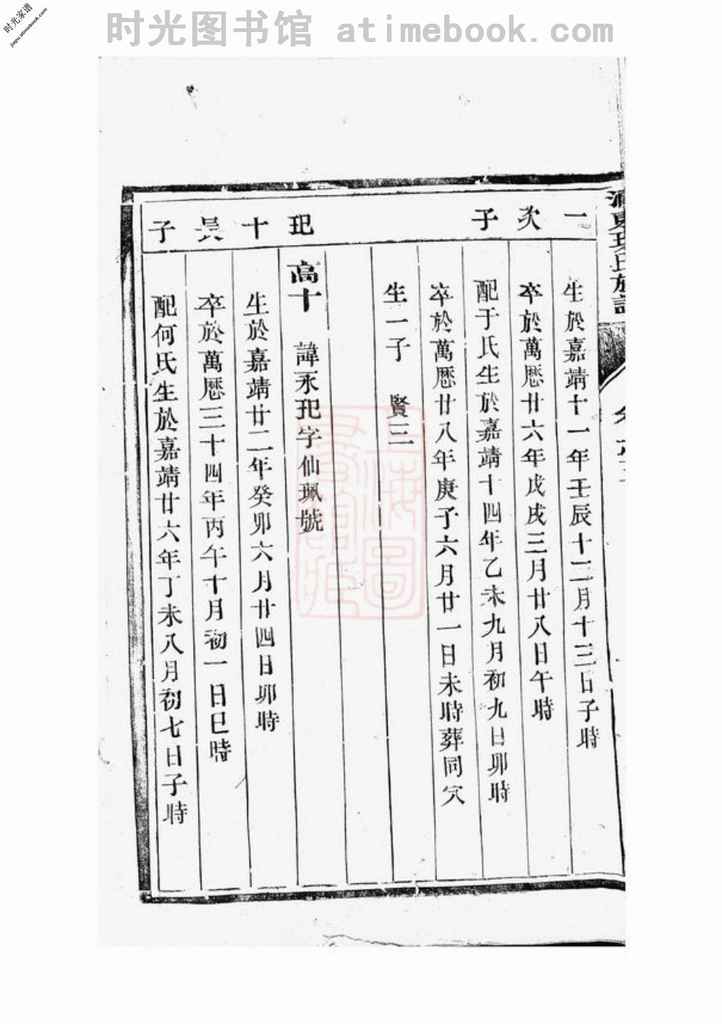 时光图书馆 atimebook.com
时光家谱
jiapu.atimebook.com
一次子
生於嘉靖十一年壬辰十二月十三日子時
卒於萬厯廿六年戊戌三月廿八日午時
配于氏生於嘉靖十四年乙未九月初九日卯時
卒於萬厯廿八年庚子六月廿一日未時葬同穴
生一子 賢三
玘十 長子
高十 諱永玘字仙珮號
生於嘉靖廿二年癸卯六月廿四日卯時
卒於萬厯三十四年丙午十月初一日巳時
配何氏生於嘉靖廿六年丁未八月初七日子時